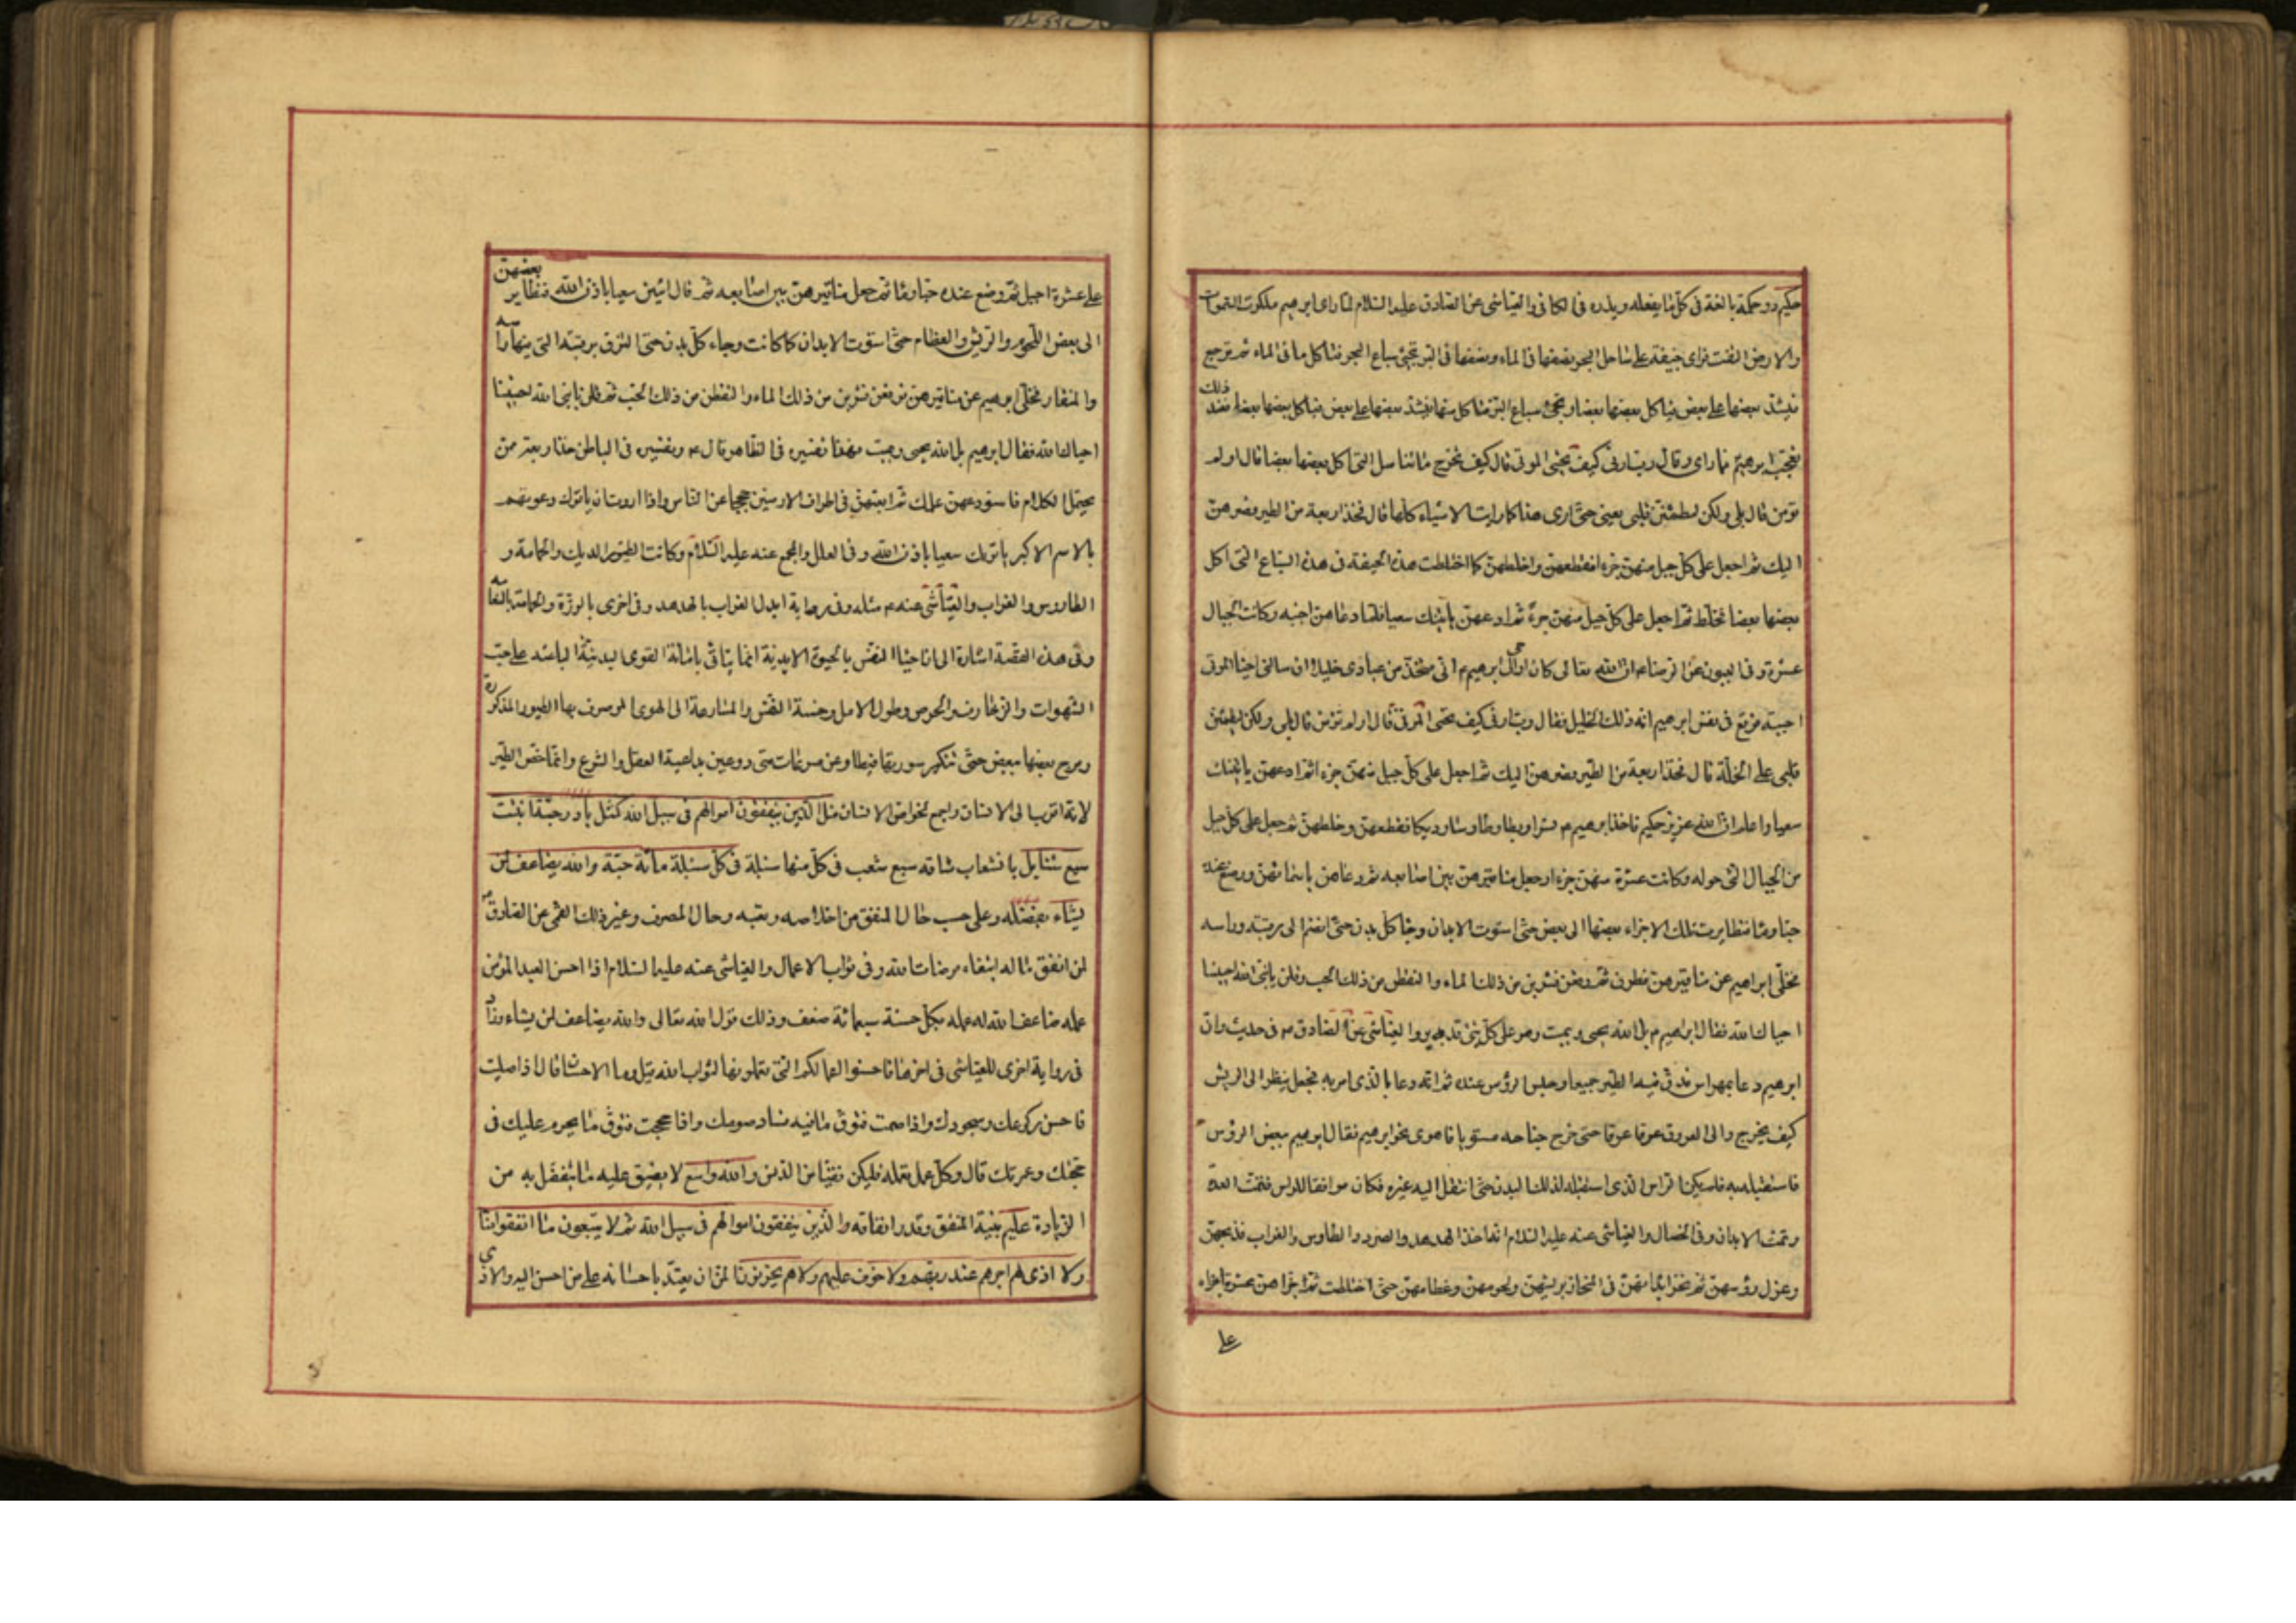 حكيم ذو حكمة بالغة فى كلّ ما يفعله ويذره فى الكافى والعياشى عن الصادق عليه السلام لما راى ابرهيم ملكوت السموات
والارض التفت فراى جيفة على ساحل البحر نصفها فى الماء ونصفها فى البر تجيئ سباع البحر فتاكل ما فى الماء ثم ترجع
فيشدّ بعضها على بعض فياكل بعضها بعضا وتجيئ سباع البر فتاكل منها فيشدّ بعضها على بعض فياكل بعضها بعضا فعند ذلك
تعجب ابرهيم مما راى وقال رب ارنى كيف تحيى الموتى قال كيف تخرج ما تناسل التى اكل بعضها بعضا قال اولم
تؤمن قال بلى ولكن ليطمئن قلبى يعنى حتى ارى هذا كما رايت الاشياء كلها قال فخذ اربعة من الطير فصرهن
اليك ثم اجعل على كل جبل منهن جزء افقطعهن واخلطهن كما اختلطت هذه الجيفة فى هذه السباع التى اكل
بعضها بعضا فخلط ثم اجعل على كل جبل منهن جزء ثم ادعهن ياتينك سعيا فلما دعاهن اجبنه وكانت الجبال
عشرة وفى العيون عن الرضا ع ان الله تعالى كان اوحى الى ابرهيم م انى متخذ من عبادى خليلا ان سالنى احياء الموتى
اجبته فوقع فى نفس ابرهيم انه ذلك الخليل فقال رب ارنى كيف تحيى الموتى قال اولم تؤمن قال بلى ولكن ليطمئن
قلبى على الخلة قال فخذ اربعة من الطير فصرهن اليك ثم اجعل على كل جبل منهن جزء اثم ادعهن ياتينك
سعيا واعلم ان الله عزيز حكيم فاخذ ابرهيم م نسرا وبطا وطاوسا وديكا فقطعهن وخلطهن ثم جعل على كل جبل
من الجبال التى حوله وكانت عشرة منهن جزء اوجعل مناقيرهن بين اصابعه ثم دعاهن باسمائهن ووضع عنده
حبا وماء فتطايرت تلك الاجزاء بعضها الى بعض حتى استوت الابدان وجاء كل بدن حتى انضم الى رقبته وراسه
فخلّى ابراهيم عن مناقيرهن فطرن ثم وقعن فشربن من ذلك الماء والتقطن من ذلك الحب وقلن يا نبى الله احييتنا
احياك الله فقال ابراهيم م بل الله يحيى ويميت وهو على كل شئ قدير والعياشى عن الصادق م فى حديث وان
ابرهيم دعا بمهراس فدق فيه الطير جميعا وحبس الرؤس عنده ثم انه دعا بالذى امر به فجعل ينظر الى الريش
كيف يخرج والى العروق عرقا عرقا حتى خرج جناحه مستويا فاهوى نحو ابرهيم فقال ابرهيم ببعض الرؤس
فاستقبله به فلم يكن الراس الذى استقبله لذلك البدن حتى انتقل اليه غيره فكان موافقا للراس فتمت العدة
وتمت الابدان وفى الخصال والعياشى عنه عليه السلام انه اخذ الهدهد والصرد والطاوس والغراب فذبحهن
وعزل رؤسهن ثم نحز ابدانهن فى المنحاز بريشهن ولحومهن وعظامهن حتى اختلطت ثم جزاهن عشرة اجزاء
على
على عشرة اجبل ثم وضع عنده حبا وماء ثم جعل مناقيرهن بين اصابعه ثم قال ائتين سعيا باذن الله فتطاير بعضهن
الى بعض اللحوم والريش والعظام حتى استوت الابدان كما كانت وجاء كل بدن حتى التزق برقبته التى فيها راسه
والمنقار فخلى ابرهيم عن مناقيرهن فوقعن فشربن من ذلك الماء والتقطن من ذلك الحب ثم قلن يا نبى الله احييتنا
احياك الله فقال ابرهيم بل الله يحيى ويميت فهذا تفسيره فى الظاهر قال م وتفسيره فى الباطن خذ اربعة ممن
يحتمل الكلام فاستودعهن علمك ثم ابعثهن فى اطراف الارضين حججا عن الناس واذا اردت ان ياتوك دعوتهم
بالاسم الاكبر ياتونك سعيا باذن الله وفى العلل والمجمع عنه عليه السلام وكانت الطيور الديك والحمامة و
الطاوس والغراب والعياشى عنه م مثله وفى رواية ابدل الغراب بالهدهد وفى اخرى بالوزة والحمامة بالنعامة
وفى هذه القصة اشارة الى ان احياء النفس بالحيوة الابدية انما يتاتى باماتة القوى البدنية الباعثة على حب
الشهوات والزخارف والحرص وطول الامل وخسة النفس والمسارعة الى الهوى الموصوف بها الطيور المذكورة
ومزج بعضها ببعض حتى تنكسر سورتها فيطاوعن مسرعات متى دوعين بداعية العقل والشرع وانما خص الطير
لانه اقرب الى الانسان واجمع لخواص الانسان مثل الذين ينفقون اموالهم فى سبيل الله كمثل باذر حبة انبتت
سبع سنابل بانشعاب ساقه سبع شعب فى كل منها سنبلة فى كل سنبلة مائة حبة والله يضاعف لمن
يشاء بفضله وعلى حسب حال المنفق من اخلاصه وتعبه وحال المصرف وغير ذلك القمى عن الصادق م
لمن انفق ماله ابتغاء مرضات الله وفى ثواب الاعمال والعياشى عنه عليه السلام اذا احسن العبد المؤمن
عمله ضاعف الله له عمله بكل حسنة سبعمائة ضعف وذلك قول الله تعالى والله يضاعف لمن يشاء وزاد
فى رواية اخرى للعياشى فى اخرها فاحسنوا اعمالكم التى تعملونها لثواب الله قيل وما الاحسان قال اذا صليت
فاحسن ركوعك وسجودك واذا صمت فتوق ما فيه فساد صومك واذا حججت فتوق ما يحرم عليك فى
حجك وعمرتك قال وكل عمل تعمله فليكن نقيا من الدنس والله واسع لا يضيق عليه ما يتفضل به من
الزيادة عليم بنية المنفق وقدر انفاقه والذين ينفقون اموالهم فى سبيل الله ثم لا يتبعون ما انفقوا منا
ولا اذى لهم اجرهم عند ربهم ولا خوف عليهم ولا هم يحزنون المن ان يعتد باحسانه على من احسن اليه والاذى